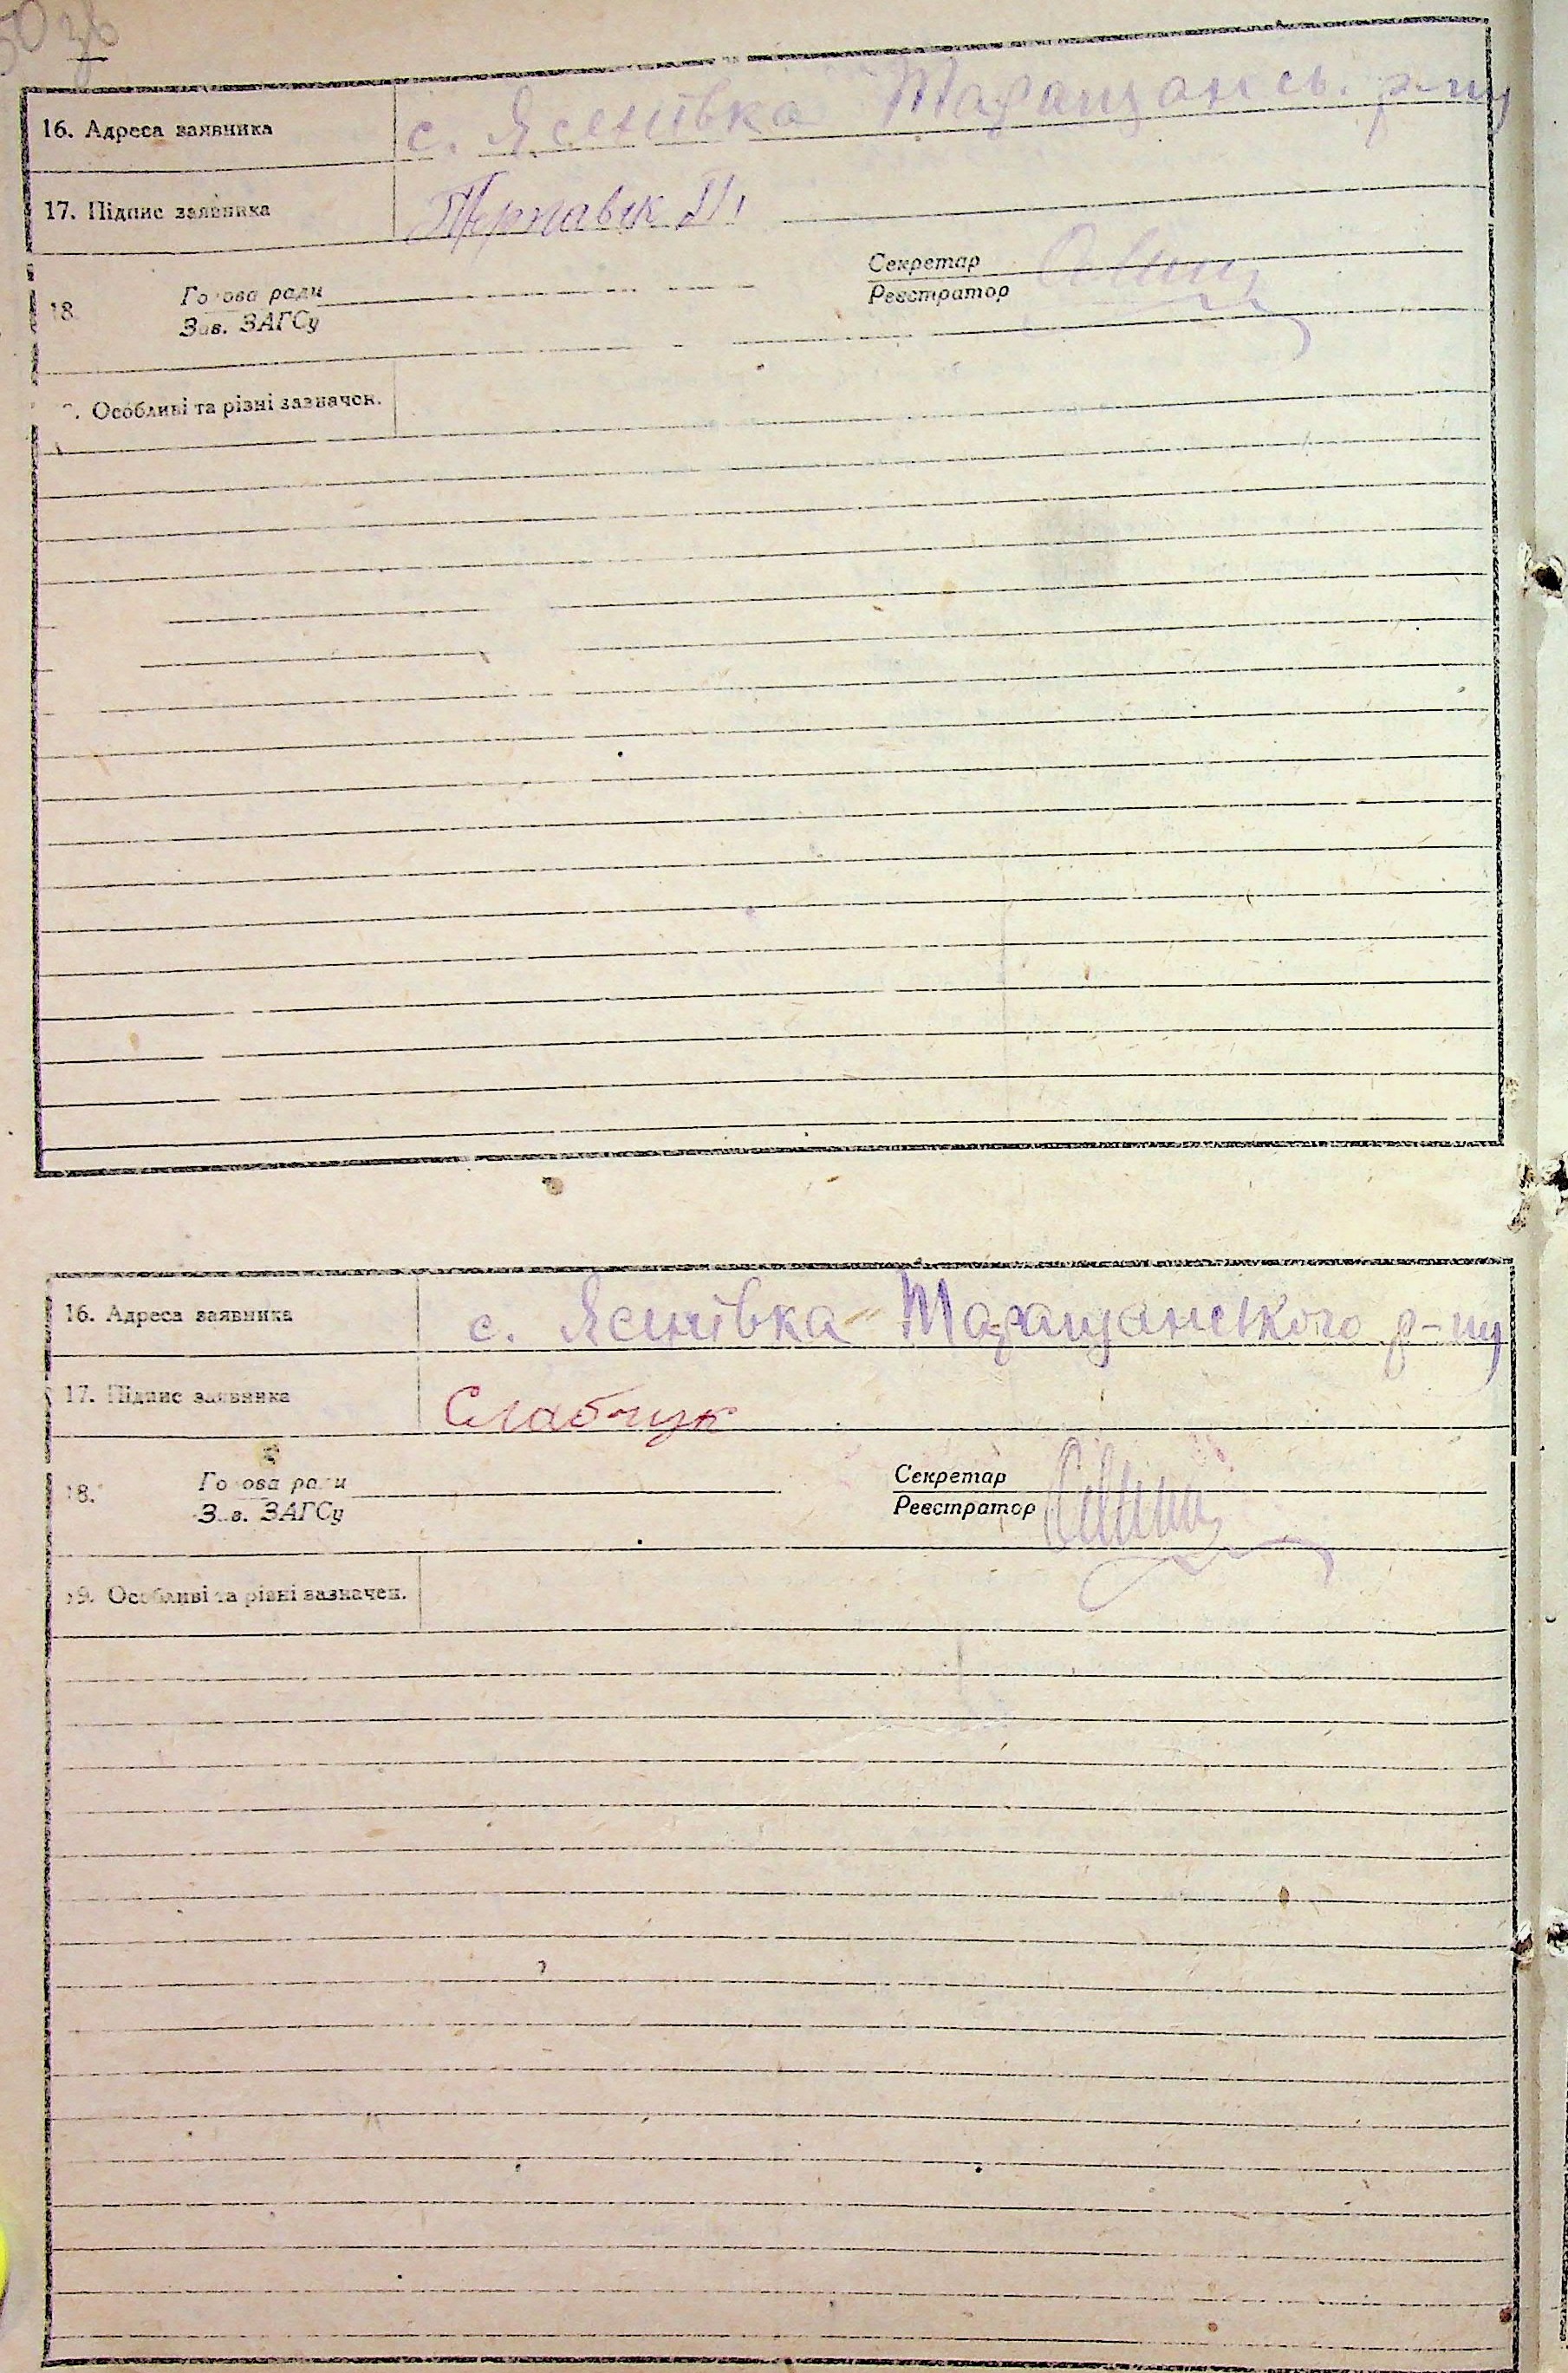 50 зв
16. Адреса заявника с. Яснівка Таращанськ. р-ну
17. Підпис заявника
18. Голова ради Секретар
Зав. ЗАГСу Реєстратор
Особливі та різні зазначен.
16. Адреса заявника с. Яснівка Таращанського р-ну
17. Підпис заявника Слабчук
18. Голова ради Секретар
Зав. ЗАГСу Реєстратор
19. Особливі та різні зазначен.